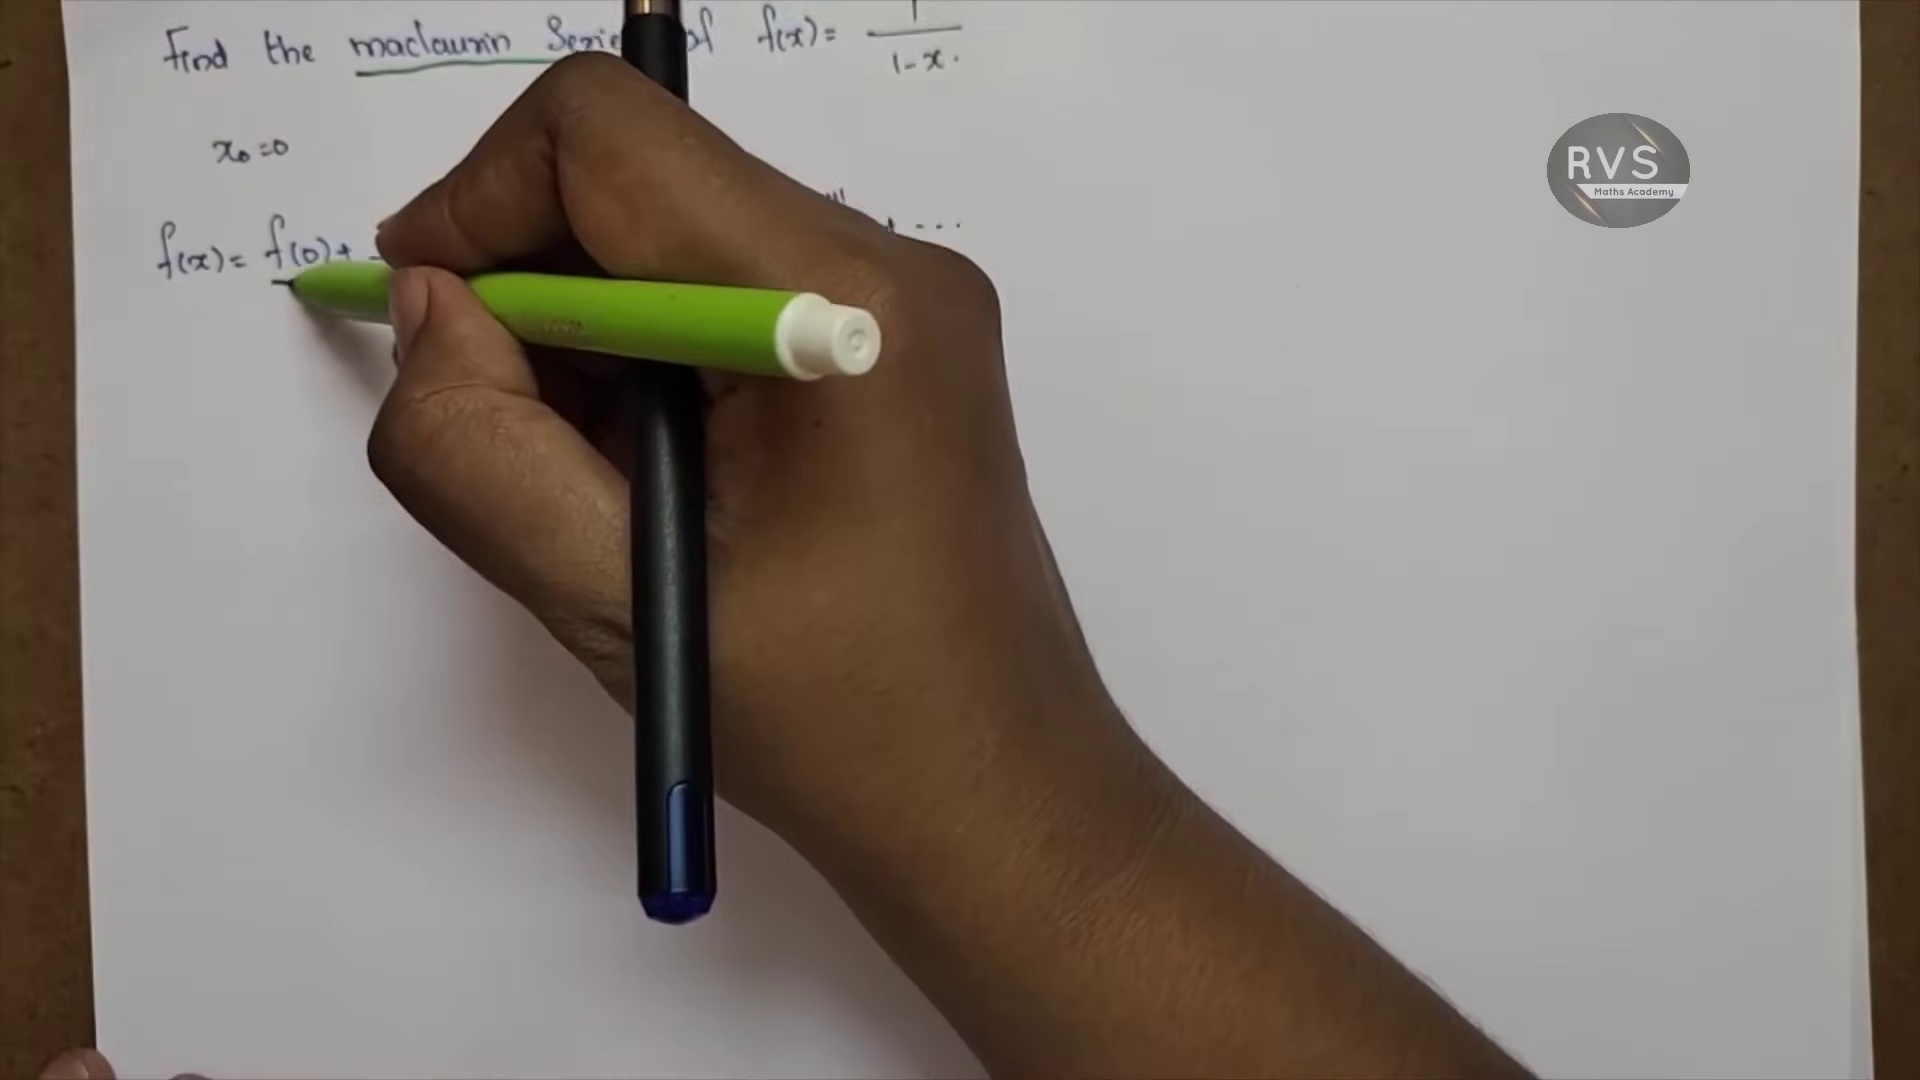 Find the maclaurin Series of f(x) = 1/1-x.
x₀ = 0
f(x) = f(0) + ...
RVS
Maths Academy